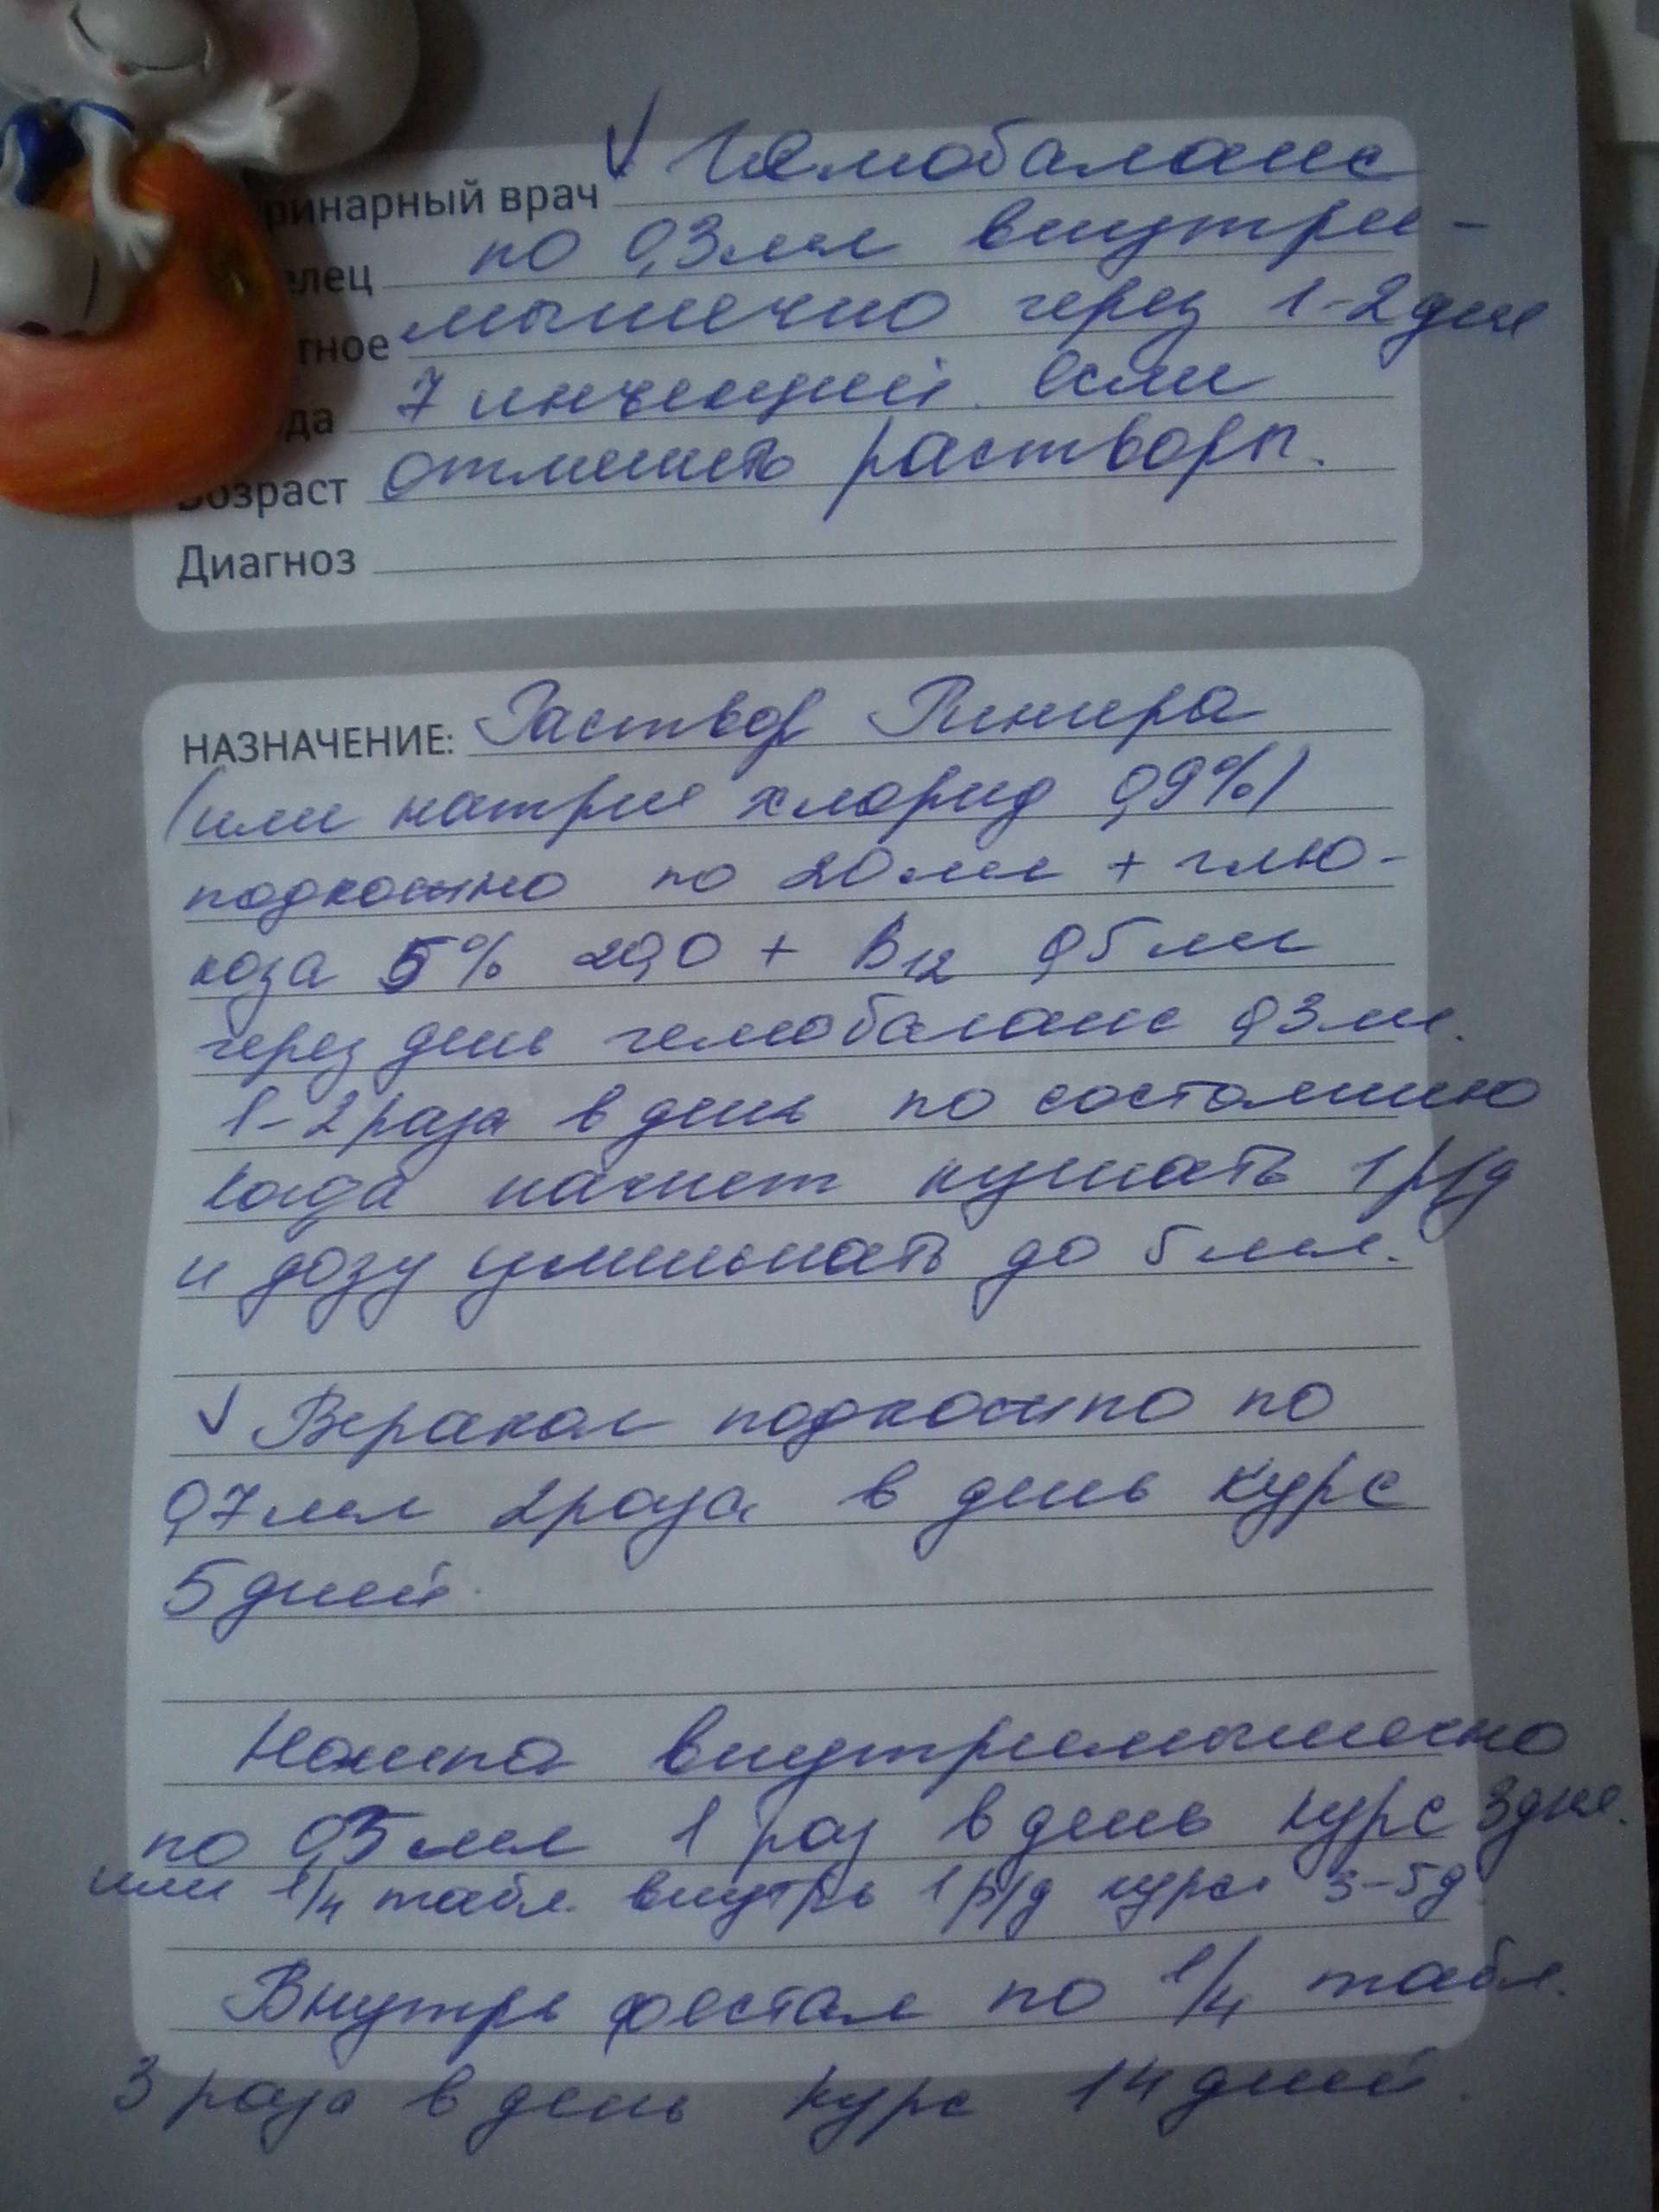 ринарный врач √ Гемобаланс
елец по 0,3 мл внутри-
тное мышечно через 1-2 дня
да 7 инъекций. если
Возраст отменить растворы.
Диагноз
НАЗНАЧЕНИЕ: Раствор Рингера
(или натрия хлорид 0,9%)
подкожно по 20 мл + глю-
коза 5% 20,0 + В12 0,5 мл
через день гемобаланс 0,3 мл.
1-2 раза в день по состоянию
когда начнет кушать 1 р/д
и дозу уменьшать до 5 мл.
√ Веракол подкожно по
0,7 мл 2 раза в день курс
5 дней.
Ношпа внутримышечно
по 0,5 мл 1 раз в день курс 3 дня.
или 1/4 табл. внутрь 1 р/д курс 3-5 д
Внутрь фестал по 1/4 табл.
3 раза в день курс 14 дней.